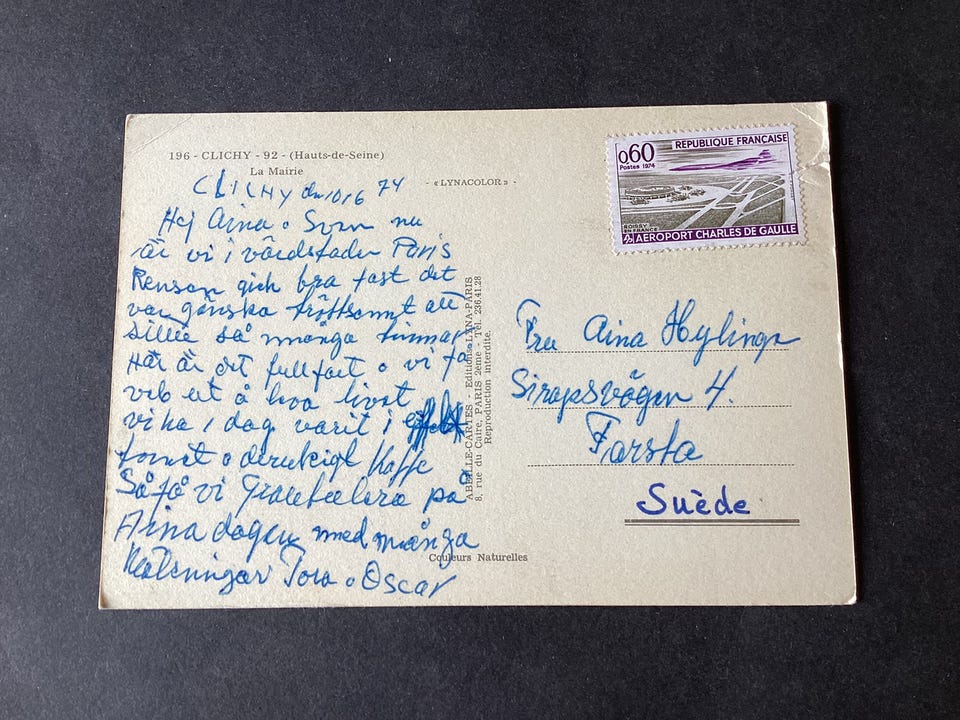 196 - CLICHY - 92 - (Hauts-de-Seine)
La Mairie
- «LYNACOLOR» -
CLICHY den 10/6 74
Hej Aina o Sven nu
är vi i värdstaden Paris
Rensan gick bra fast det
var gånska tröttsamt att
så många timmar
Här är det full fart o vi få
ut å leva livet
vi ha i dag varit i
tornet o druckigt Kaffe
Så få vi Gratulera på
Aina dagen med många
Hälsningar Tora o Oscar
ABEILLE-CARTES - Editions LYNA-PARIS
8, rue du Caire, PARIS 2eme - Tél. 236.41.28
Reproduction interdite.
Couleurs Naturelles
0,60
Postes 1974
REPUBLIQUE FRANÇAISE
ROISSY
EN FRANCE
AEROPORT CHARLES DE GAULLE
Fru Aina Hylinger
Sirapsvägen 4.
Farsta
Suède